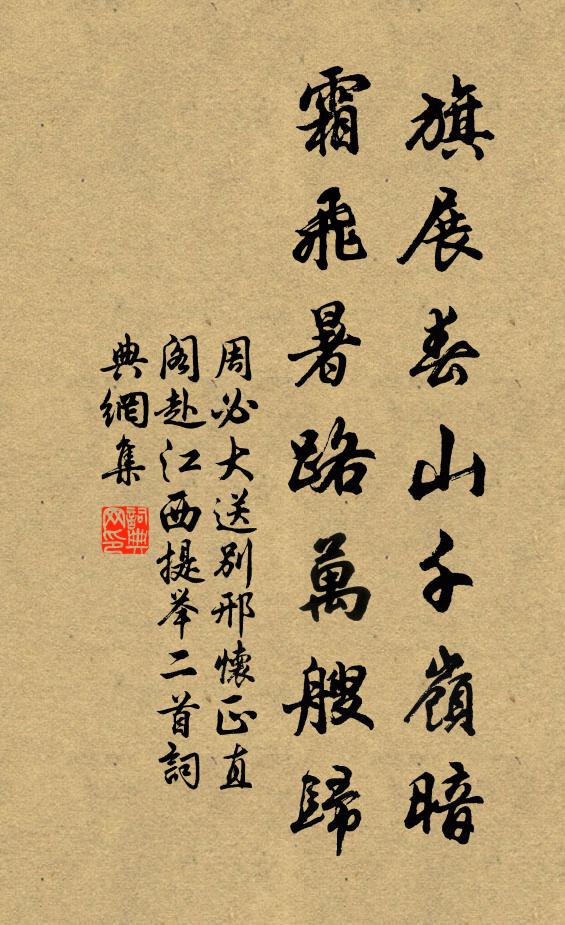 旗展春山千嶺暗
霜飛暑路萬艘歸
周必大送別邢懷正直
閣赴江西提举二首詞
典網集
詞典網印